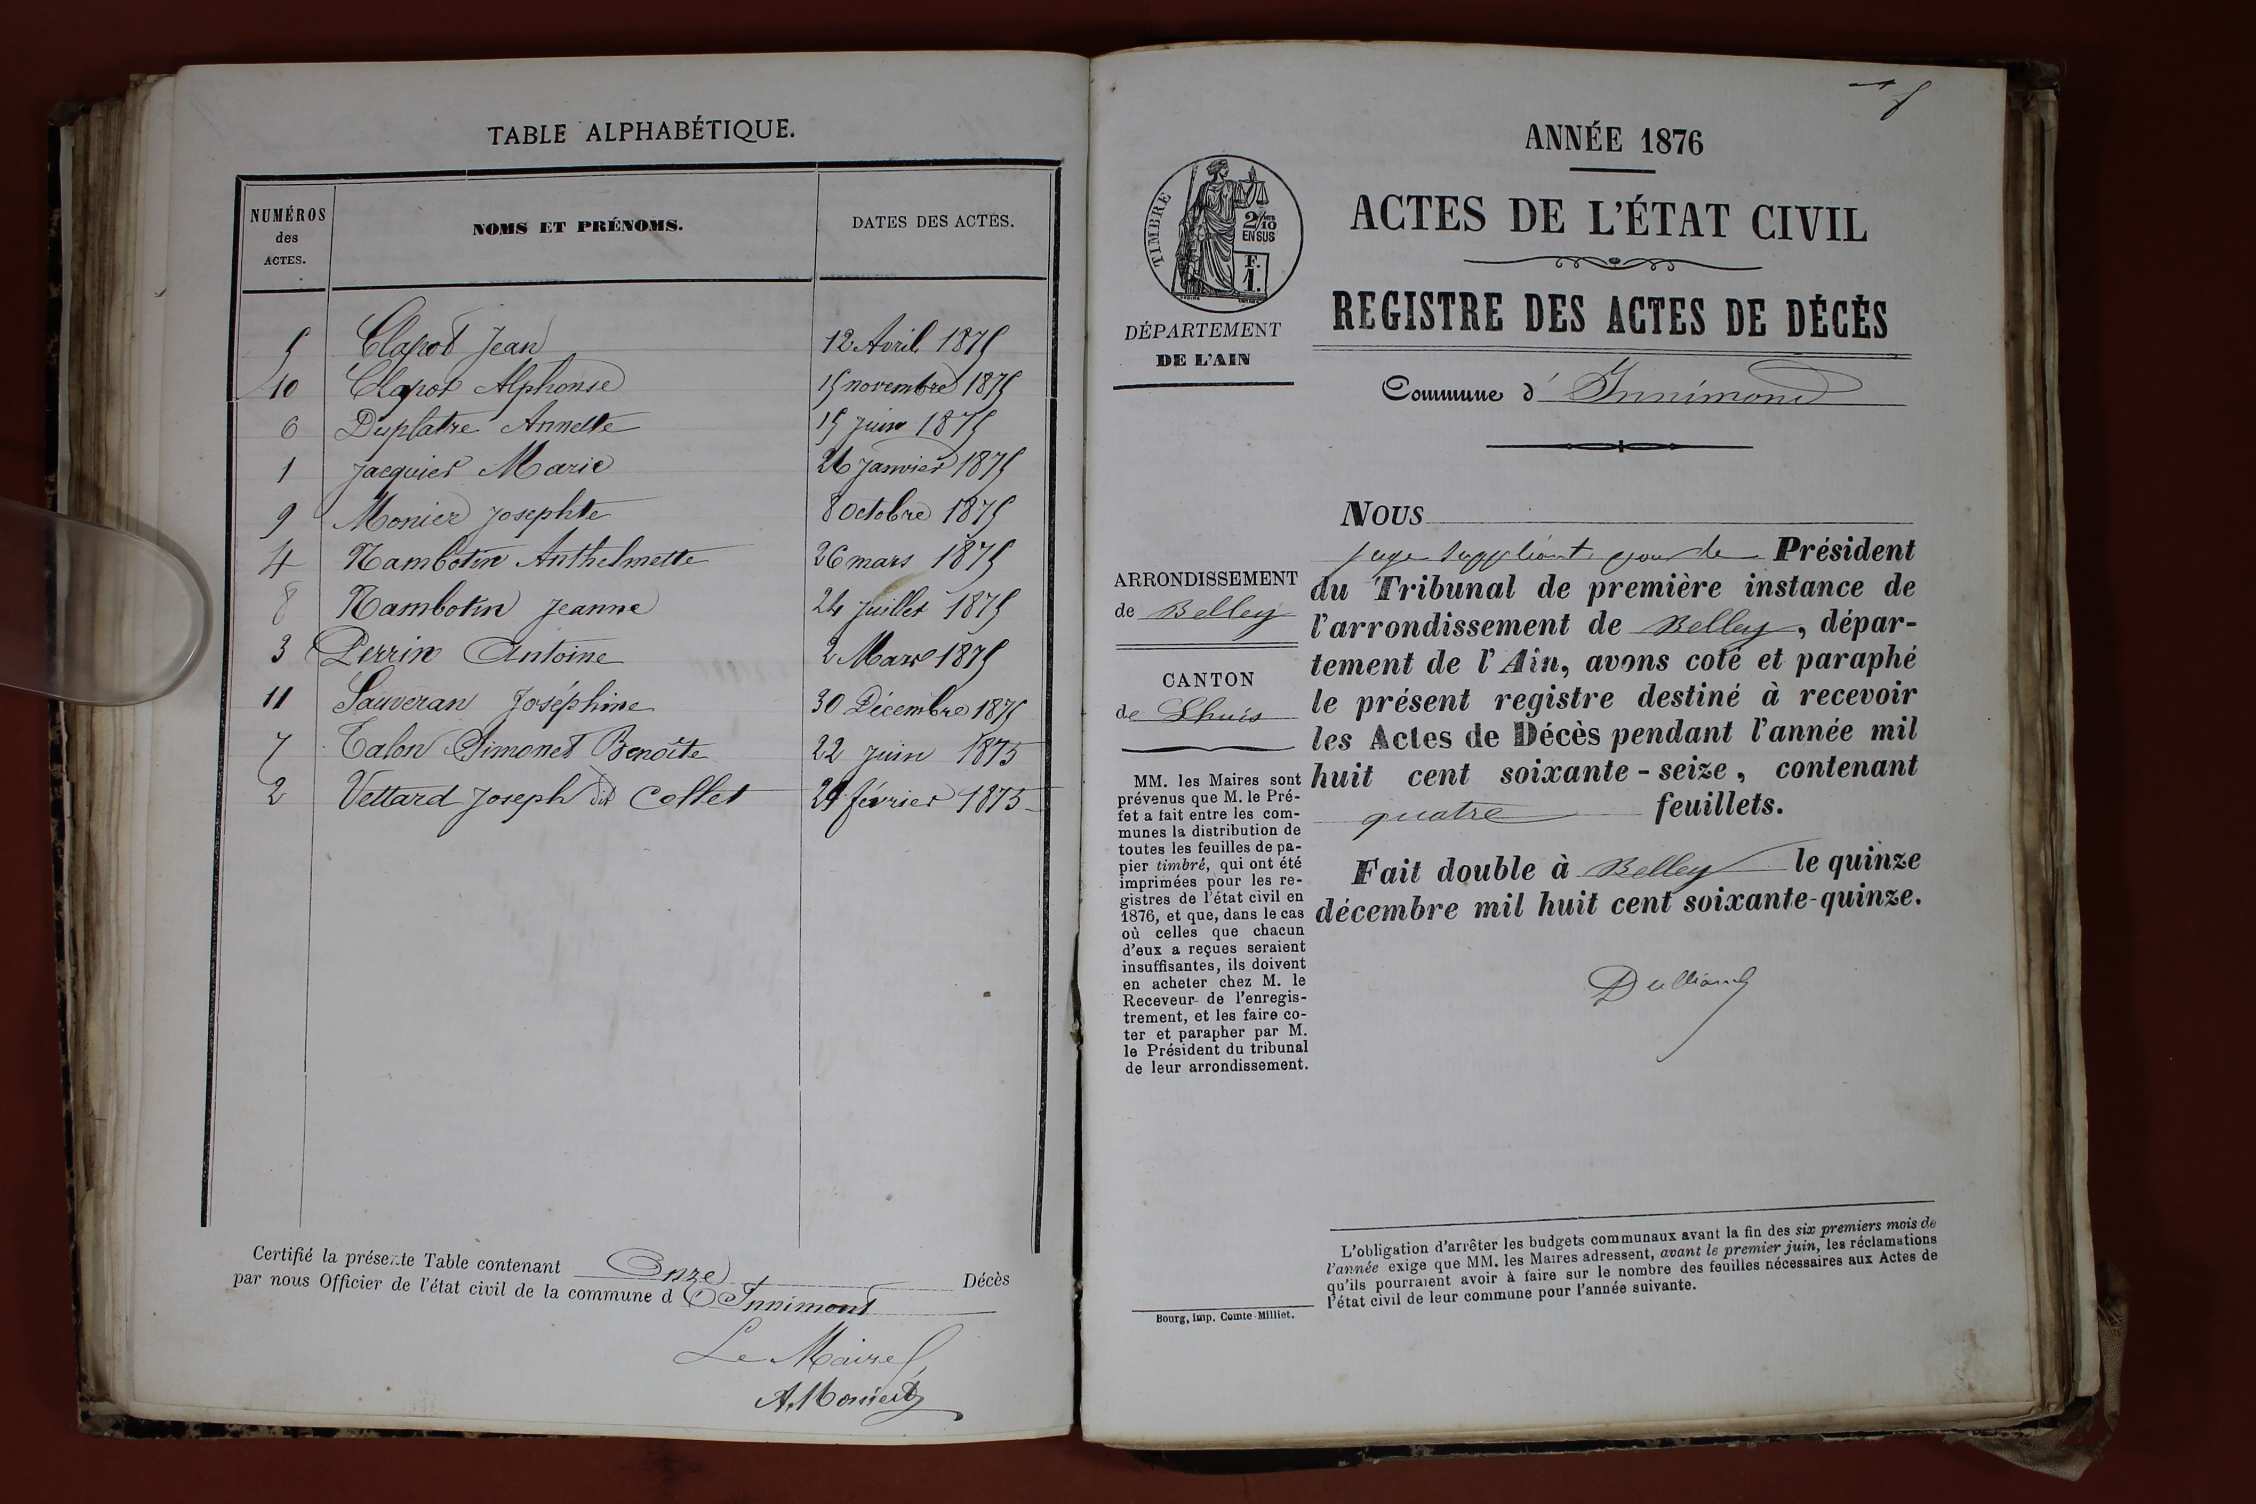 TABLE ALPHABÉTIQUE.
NUMÉROS des ACTES. NOMS ET PRÉNOMS. DATES DES ACTES.
5 Clapot Jean 12 Avril 1875
10 Clapot Alphonse 15 novembre 1875
6 Duplatre Annette 15 juin 1875
1 Jacquier Marie 26 janvier 1875
9 Monier Josephte 8 Octobre 1875
4 Nambotin Anthelmette 26 mars 1875
8 Nambotin Jeanne 24 juillet 1875
3 Perrin Antoine 2 Mars 1875
11 Sauveran Joséphine 30 Décembre 1875
7 Talon Simonet Benoîte 22 juin 1875
2 Vettard Joseph dit Collet février 1875
Certifié la présente Table contenant Onze Décès
par nous Officier de l'état civil de la commune d Innimont
Le Maire
A. Monier
ANNÉE 1876
ACTES DE L'ÉTAT CIVIL
REGISTRE DES ACTES DE DÉCÈS
TIMBRE
2/10
EN SUS
F.
1.
DÉPARTEMENT
DE L'AIN
Commune d' Innimond
ARRONDISSEMENT
de Belley
CANTON
de Lhuis
MM. les Maires sont
prévenus que M. le Pré-
fet a fait entre les com-
munes la distribution de
toutes les feuilles de pa-
pier timbré, qui ont été
imprimées pour les re-
gistres de l'état civil en
1876, et que, dans le cas
où celles que chacun
d'eux a reçues seraient
insuffisantes, ils doivent
en acheter chez M. le
Receveur de l'enregis-
trement, et les faire co-
ter et parapher par M.
le Président du tribunal
de leur arrondissement.
NOUS
juge suppléant pour le Président
du Tribunal de première instance de
l'arrondissement de Belley, dépar-
tement de l'Ain, avons coté et paraphé
le présent registre destiné à recevoir
les Actes de Décès pendant l'année mil
huit cent soixante-seize, contenant
quatre feuillets.
Fait double à Belley le quinze
décembre mil huit cent soixante-quinze.
L'obligation d'arrêter les budgets communaux avant la fin des six premiers mois de
l'année exige que MM. les Maires adressent, avant le premier juin, les réclamations
qu'ils pourraient avoir à faire sur le nombre des feuilles nécessaires aux Actes de
l'état civil de leur commune pour l'année suivante.
Bourg, imp. Comte-Milliet.